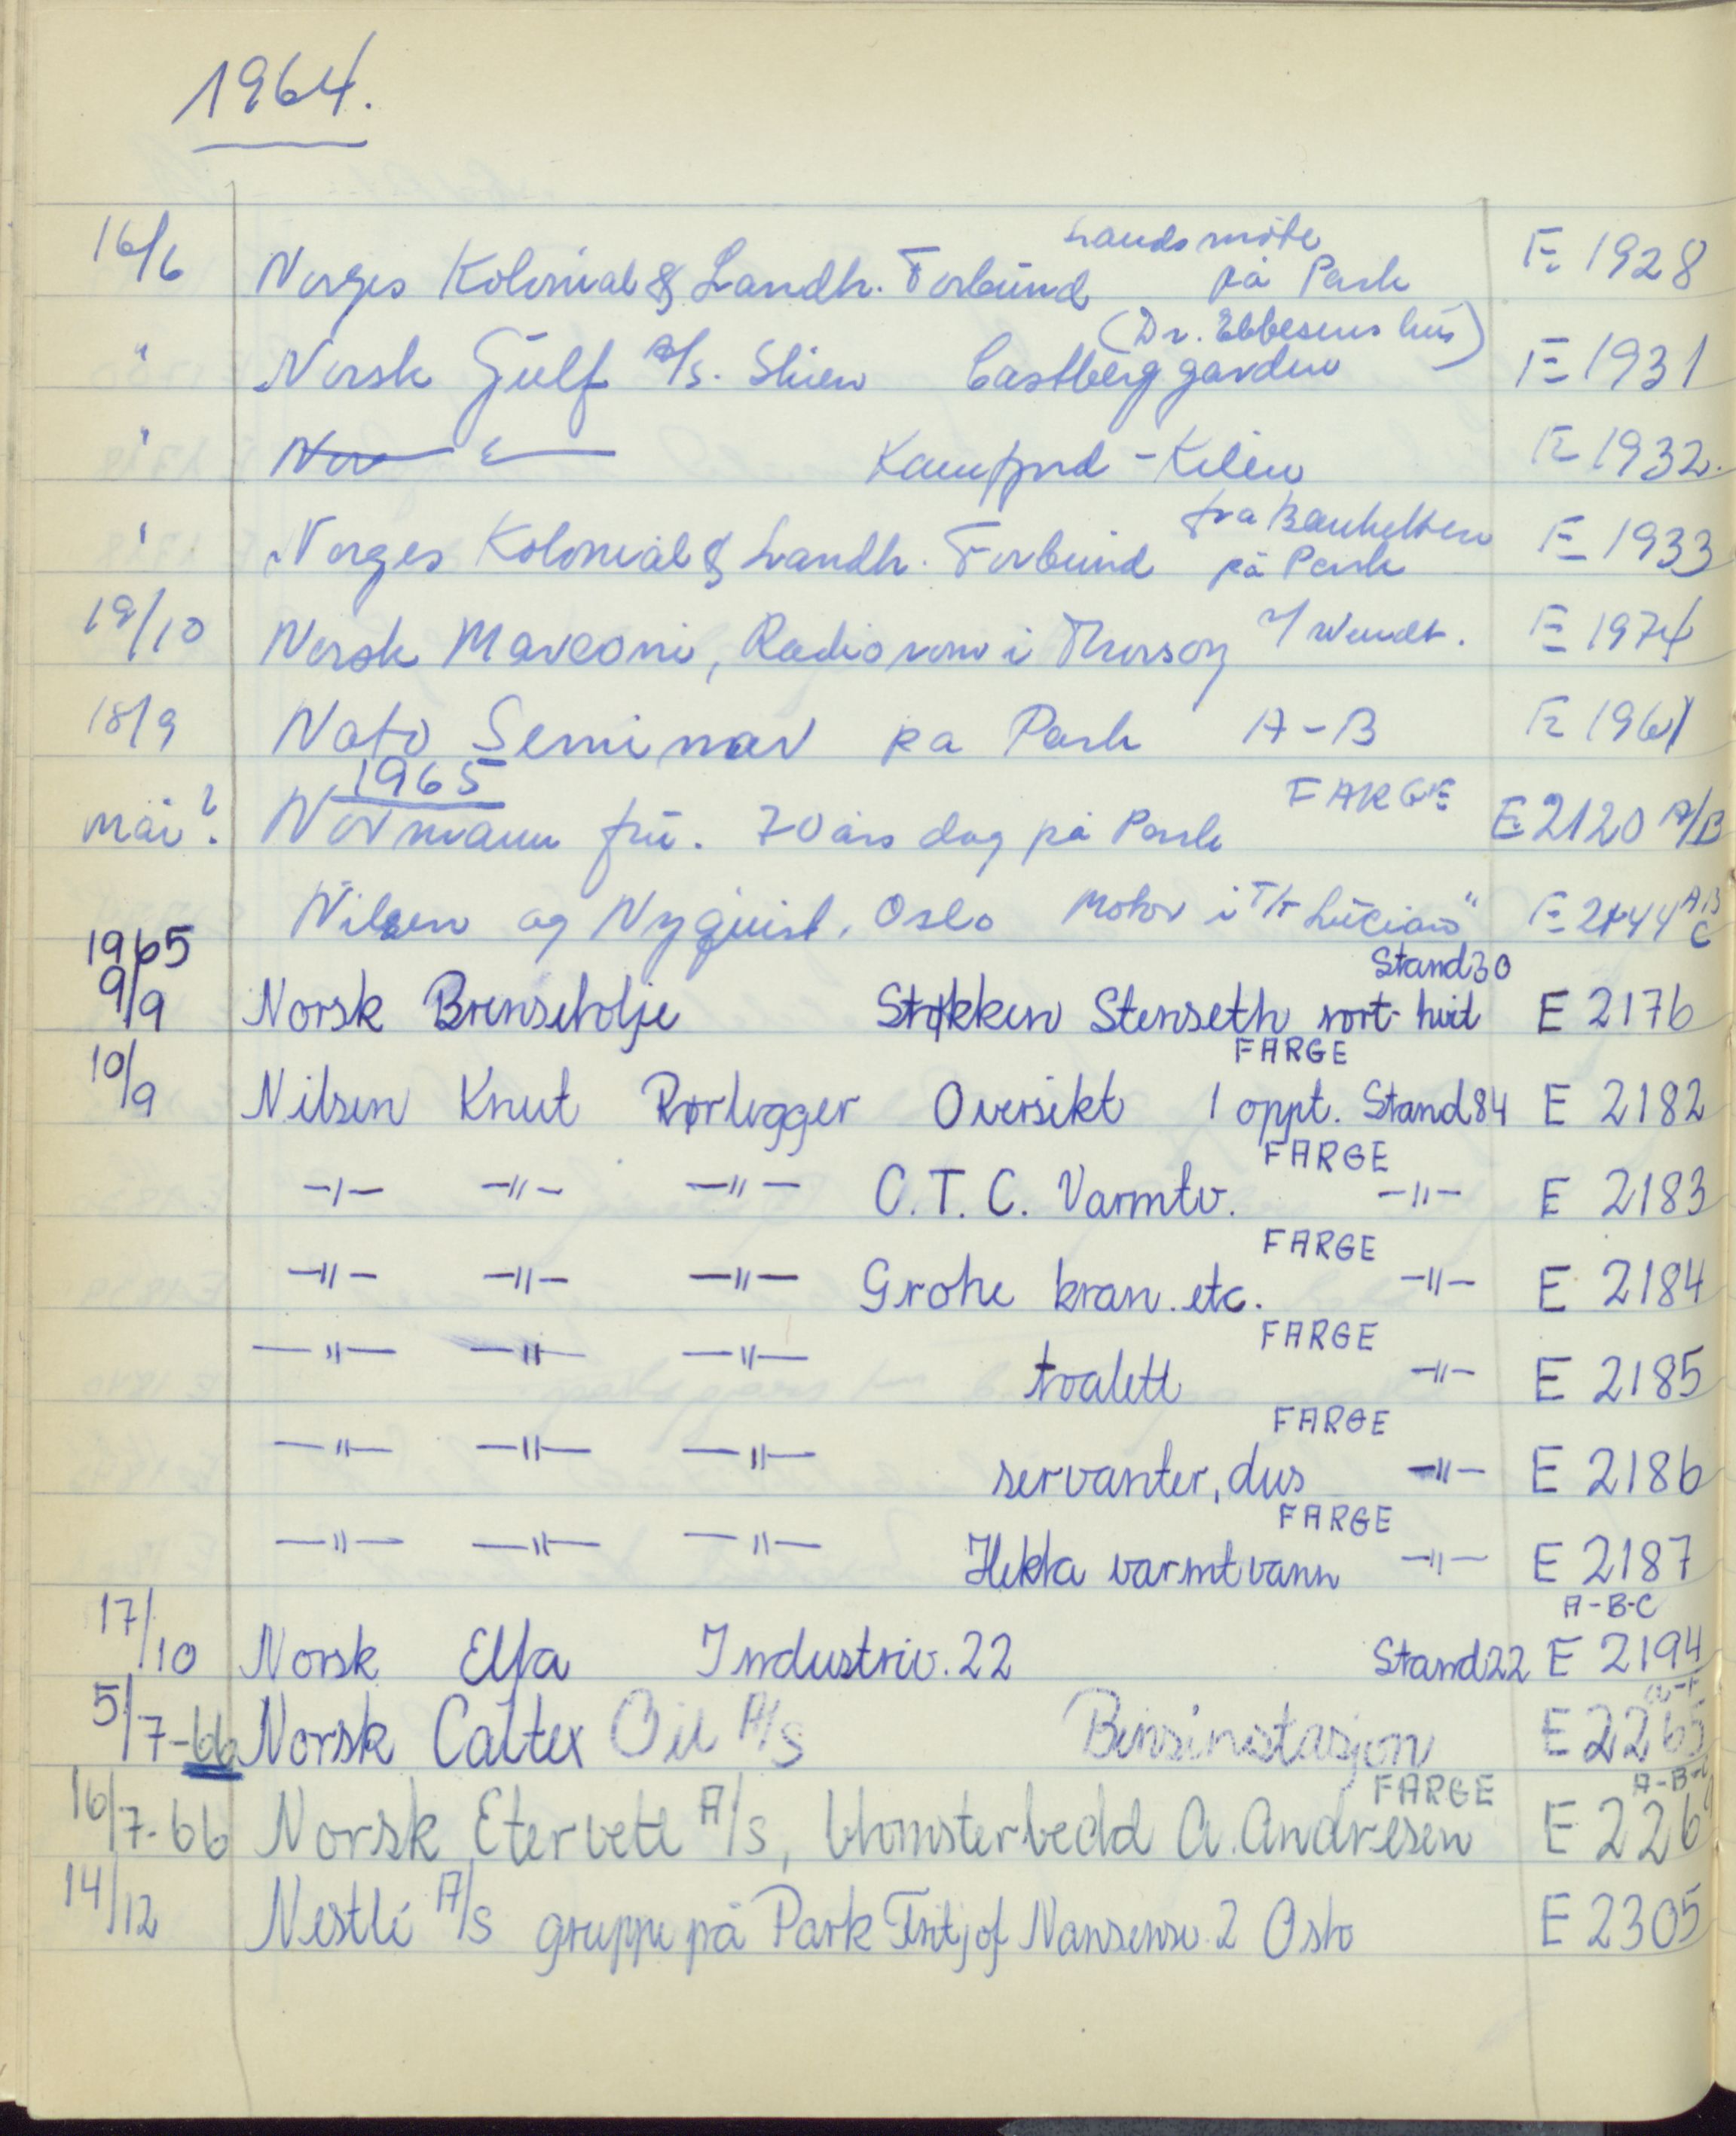 1964.
16/6 Norges Kolonial & Landh. Forbund Landsmöte på Park E 1928
" Norsk Gulf A/S. Skien Castberggarden (Dr. Ebbesens hus) E 1931
" Kamfjord - Kilen E 1932.
" Norges Kolonial & Landh. Forbund fra Banketten på Park E 1933
19/10 Norsk Marconi, Radiorom i Thorsøy E 1974
18/9 Nato Seminar på Park A-B E 1961
1965
mai? Normann fru. 70 års dag på Park FARGE E 2120 A/B
Nilsen og Nyquist, Oslo Motor i T/T "Luciano" E 2144 A B C
1965
9/9 Norsk Brenselolje Stokken Stenseth sort-hvit Stand 30 E 2176
10/9 Nilsen Knut Rørlegger Oversikt 1 oppt. FARGE Stand 84 E 2182
-"- -"- -"- C.T.C. Varmtv. FARGE -"- E 2183
-"- -"- -"- Grohe kran. etc. FARGE -"- E 2184
-"- -"- -"- toalett FARGE -"- E 2185
-"- -"- -"- servanter, dus FARGE -"- E 2186
-"- -"- -"- Hekta varmtvann FARGE -"- E 2187
17/10 Norsk Elfa Industriv. 22 Stand 22 E 2194 A-B-C
5/7-66 Norsk Caltex Oil A/S Bensinstasjon E 2265
16/7-66 Norsk Etervett A/S, blomsterbedd A. Andresen FARGE E 226 A-B-C
14/12 Nestlé A/S gruppe på Park Fritjof Nansensv. 2 Oslo E 2305